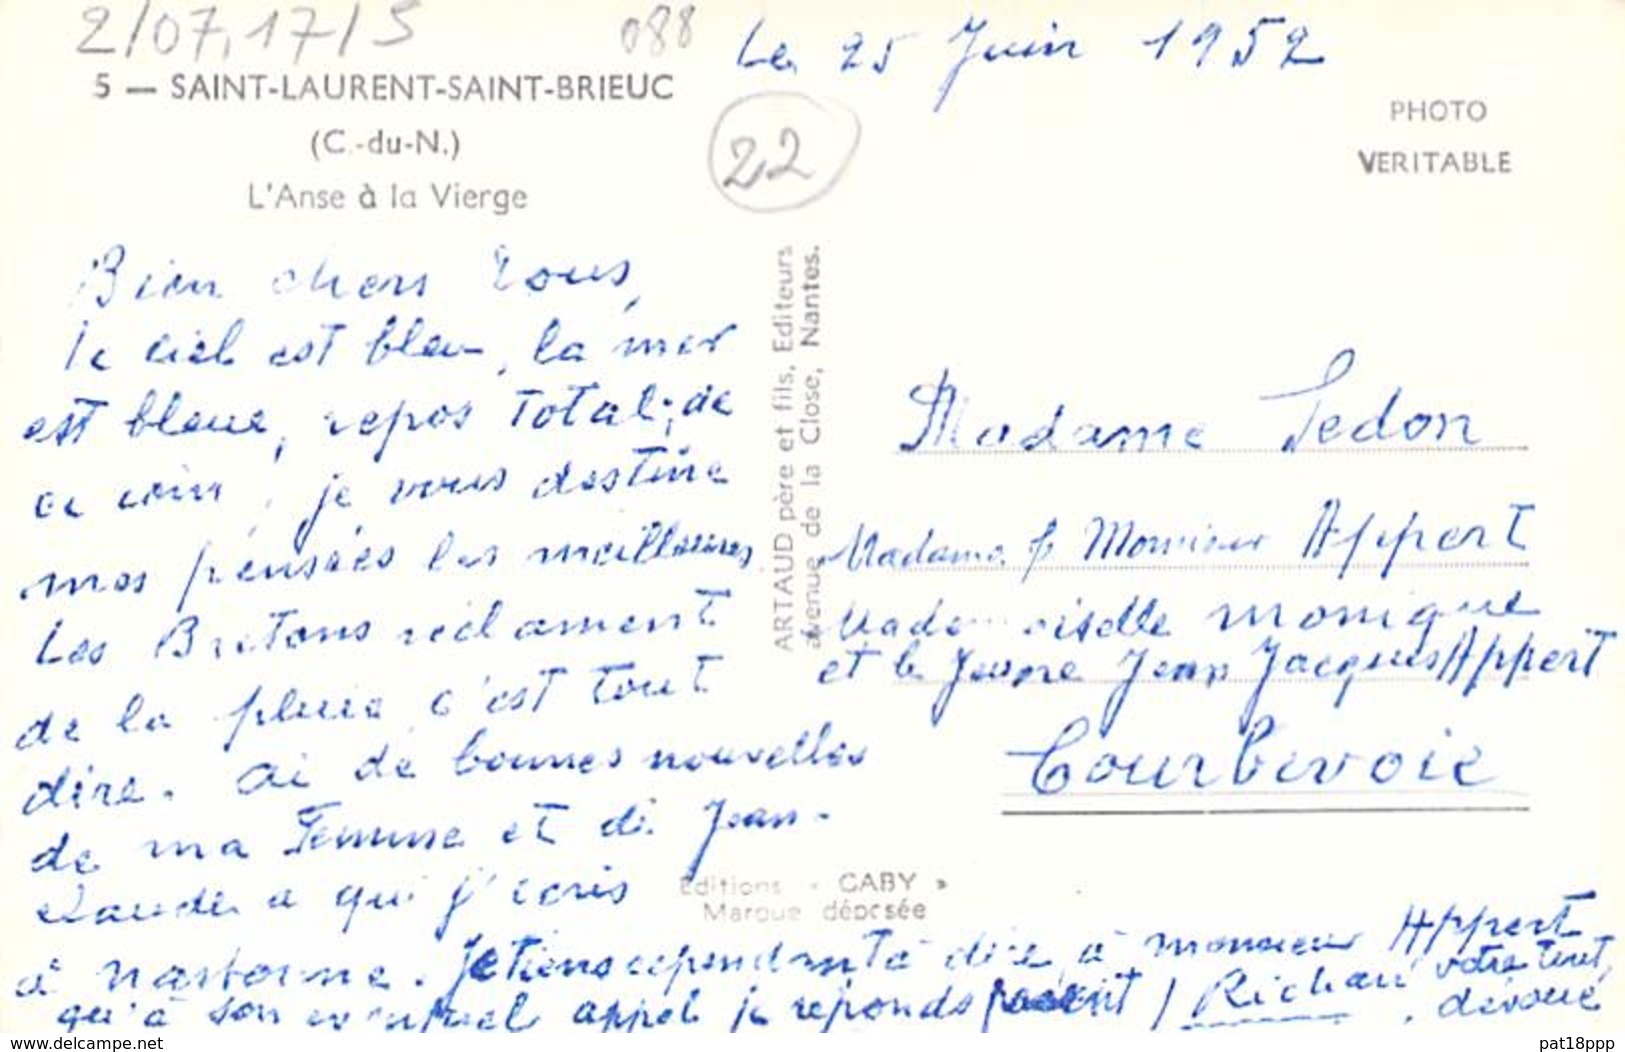 2/07.17/5
088
Le 25 Juin 1952
5 — SAINT-LAURENT-SAINT-BRIEUC
(C.-du-N.)
L'Anse à la Vierge
22
PHOTO
VERITABLE
Bien chers tous,
le ciel est bleu, la mer
est bleue, repos total; de
ce coin, je vous destine
mes pensées les meilleures
Les Bretons réclament
de la pluie c'est tout
dire. ai de bonnes nouvelles
de ma Femme et de Jean-
Claude a qui j'écris
à Narbonne. Je tiens cependant à dire à monsieur Appert
qu'à son eventuel appel je reponds présent / Richard votre tout
dévoué
ARTAUD père et fils, Editeurs
avenue de la Close, Nantes.
Editions « GABY »
Marque déposée
Madame Sedon
Madame & Monsieur Appert
Mademoiselle monique
et le Jeune Jean Jacques Appert
Courbevoie
www.delcampe.net
pat18ppp